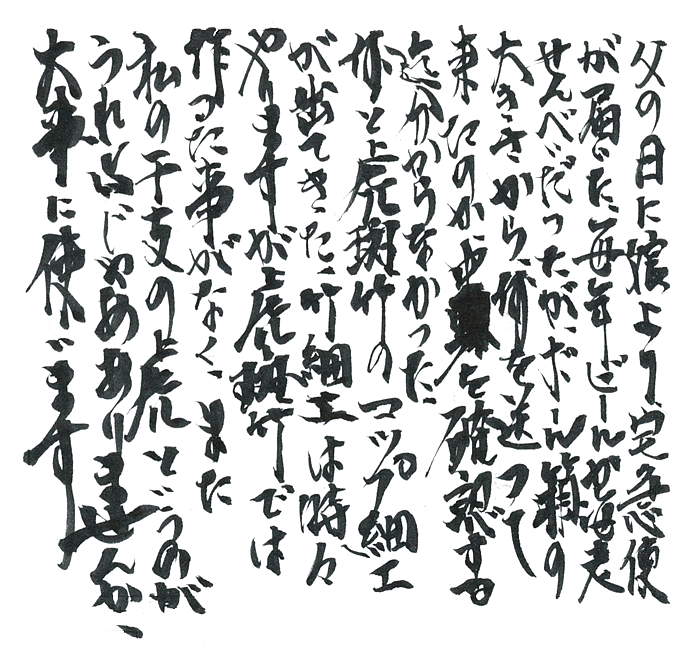 父の日に娘より宅急便
が届いた毎年ビールかお煮
せんべいだったが、ボール箱の
大きさから、何を送って
来たのか、中身を確認する
迄わからなかった、
何と虎斑竹のコップ細工
が出てきた、竹細工は時々
やりますが虎斑竹では
作った事がなく、また
私の干支の虎というのが
うれしいじゃありませんか、
大事に使います